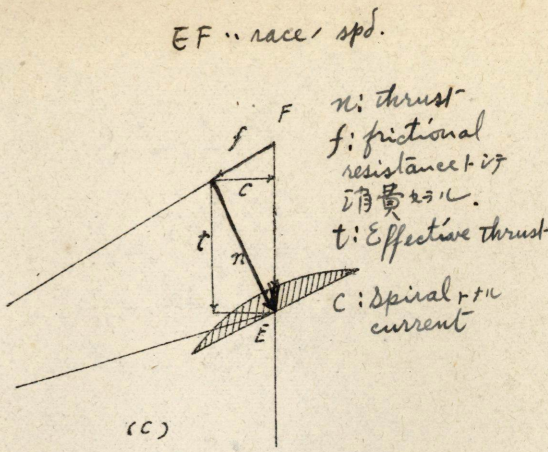 EF‥race, spd.
n: thrust
f: frictional
resistanceトシテ
消費セラル.
t: Effective thrust
c: spiralトナル
current
F
f
c
t
n
E
(C)